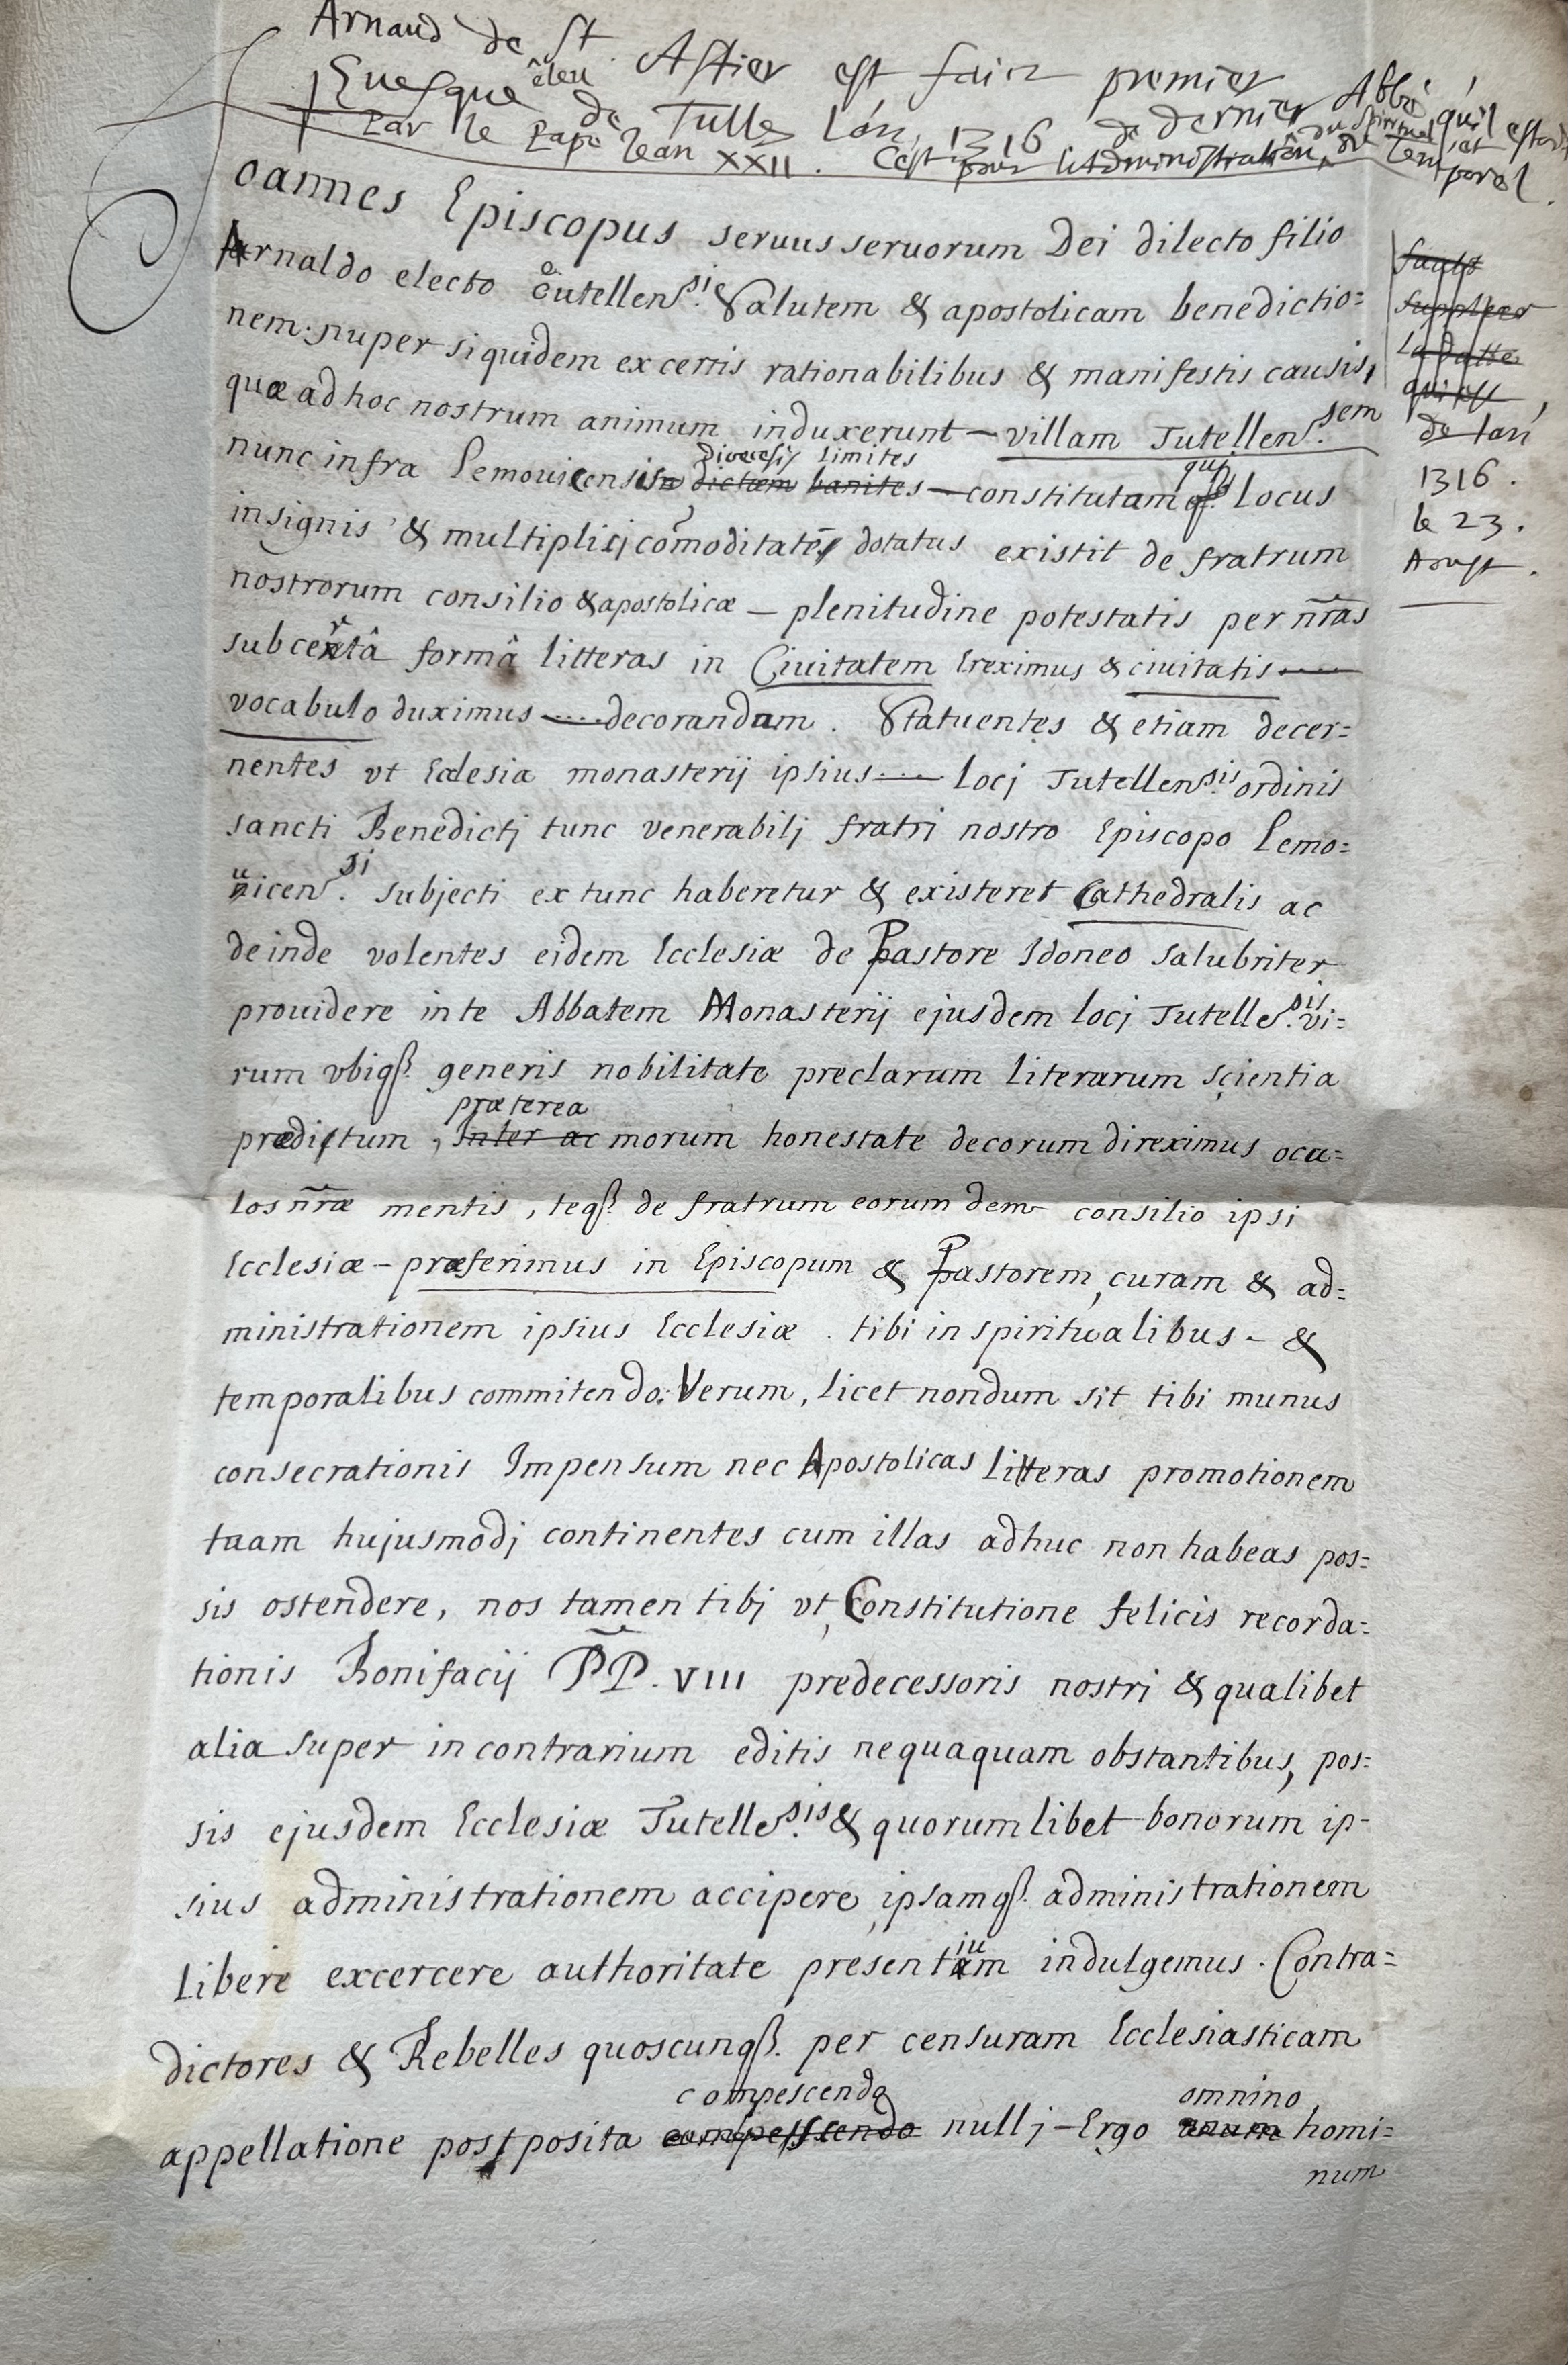 Arnaud de St Astier est faict premier
Euesque êleu de Tulle l'an 1316 de dernier Abbé qu'il estoit
Par le Pape Jean XXII. C'est pour l'Administration du spirituel et du temporel.
Joannes Episcopus seruus seruorum Dei dilecto filio
Arnaldo electo Tutellensi. Salutem & apostolicam benedictio=
nem. nuper siquidem ex certis rationabilibus & manifestis causis,
quæ ad hoc nostrum animum induxerunt — villam Tutellen.sem
nunc infra Lemouicensis diœcesis limites dictam banites — constitutam qui Locus
insignis & multiplicj comoditate dotatus existit de fratrum
nostrorum consilio & apostolicæ — plenitudine potestatis per nr̃as
sub certâ formâ litteras in Ciuitatem Ereximus & ciuitatis —
vocabulo duximus — decorandam. Statuentes & etiam decer=
nentes vt Ecclesia monasterij ipsius — Locj Tutellen.sis ordinis
sancti Benedictj tunc venerabilj fratri nostro Episcopo Lemo=
uicen.si subjecti ex tunc haberetur & existeret Cathedralis ac
deinde volentes eidem Ecclesiæ de Pastore Idoneo salubriter
prouidere in te Abbatem Monasterij ejusdem locj Tutelle.sis vi=
rum vbiqȝ. generis nobilitate preclarum literarum scientia
præditum, præterea Inter ac morum honestate decorum direximus ocu=
los nr̃æ mentis, teqȝ. de fratrum eorumdem consilio ipsi
Ecclesiæ — præferimus in Episcopum & Pastorem, curam & ad=
ministrationem ipsius Ecclesiæ. tibi in spiritualibus - &
temporalibus commitendo. Verum, licet nondum sit tibi munus
consecrationis Impensum nec Apostolicas litteras promotionem
tuam hujusmodj continentes cum illas adhuc non habeas pos=
sis ostendere, nos tamen tibj vt, Constitutione felicis recorda=
tionis Bonifacij PP. VIII predecessoris nostri & qualibet
alia super in contrarium editis nequaquam obstantibus, pos=
sis ejusdem Ecclesiæ Tutelle.sis & quorumlibet bonorum ip-
sius administrationem accipere, ipsamqȝ. administrationem
Libere excercere authoritate presentium indulgemus. Contra=
dictores & Rebelles quoscunqȝ. per censuram Ecclesiasticam
appellatione postposita compescendo compesscendo nullj — Ergo omnino homi=
num
La datte
qui est
de l'an
1316.
le 23.
Aoust.